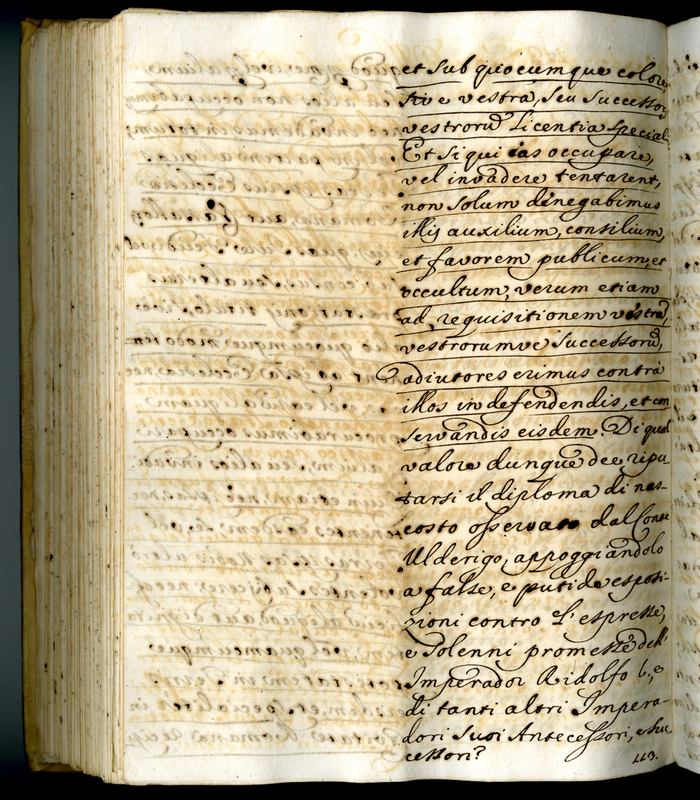 et sub quocumque colore
sive vestra, seu Successor.
vestrorũ Licentia special.
Et si qui eas occupare,
vel invadere tentarent,
non solum denegabimus
illis auxilium, consilium,
et favorem publicum, et
occultum, verum etiam
ad requisitionem vestrã,
vestrorumve Successorũ,
adiutores erimus contrà
illos in defendendis, et con
servandis eisdem. Di qual
valore dunque dee ripu
tarsi il diploma di nas-
costo osservato dal Conte
Ulderigo, appoggiandolo
a false, e putide esposi-
zioni contro l'espresse,
e solenni promesse dell'
Imperador Ridolfo
di tanti altri Impera-
dori suoi Antecessori, e suc
cessori?